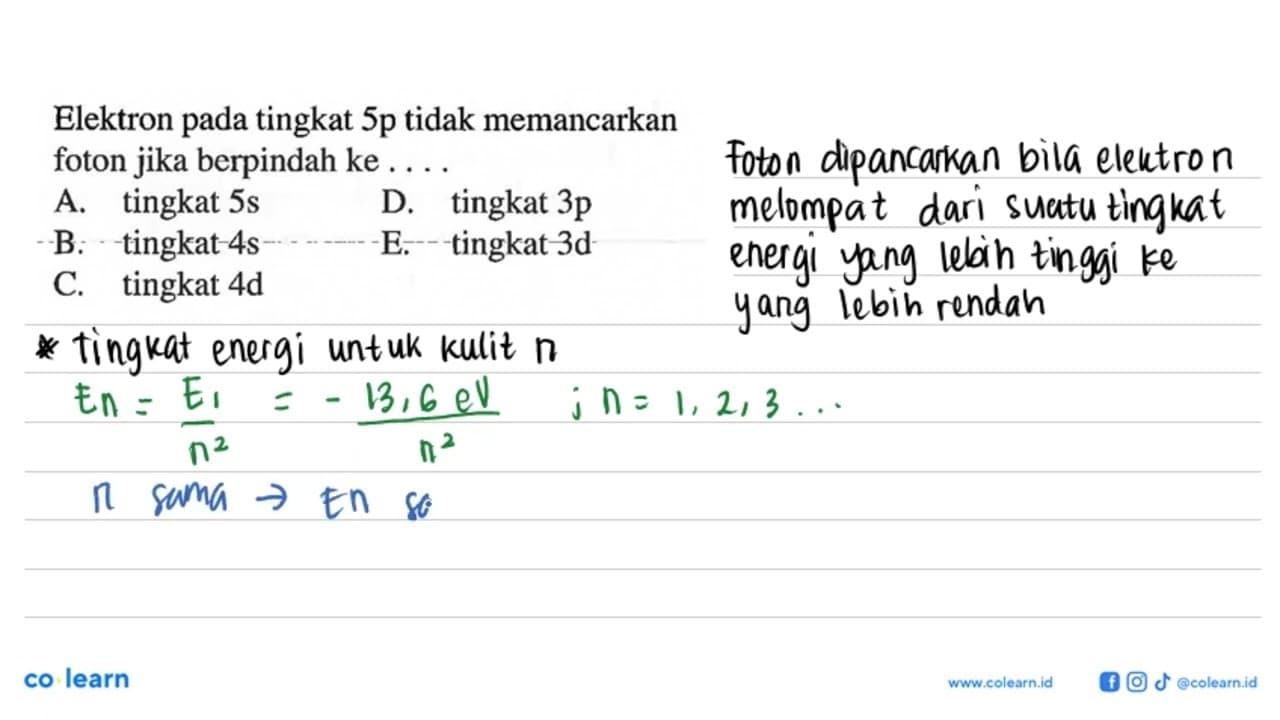 Elektron pada tingkat 5p tidak memancarkan
foton jika berpindah ke . . . .
A. tingkat 5s D. tingkat 3p
B. tingkat 4s E. tingkat 3d
C. tingkat 4d
Foton dipancarkan bila elektron
melompat dari suatu tingkat
energi yang lebih tinggi ke
yang lebih rendah
* Tingkat energi untuk kulit n
En = E1 / n² = - 13,6 eV / n² ; n = 1, 2, 3 ...
n sama → En sa
co learn
www.colearn.id
@colearn.id